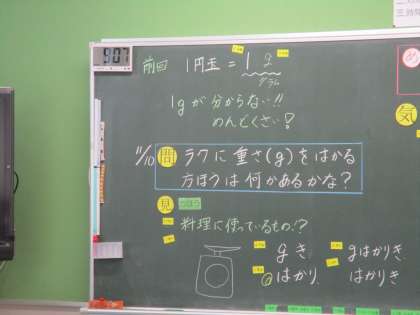 907
前回 1円玉 = 1 g
グラム
1gが分からない!!
めんどくさい?
11/10 問 ラクに重さ(g)をはかる
方ほうは何かあるかな?
見 つほう
料理に使っているもの!?
gき gはかりき
はかり はかりき
め
気